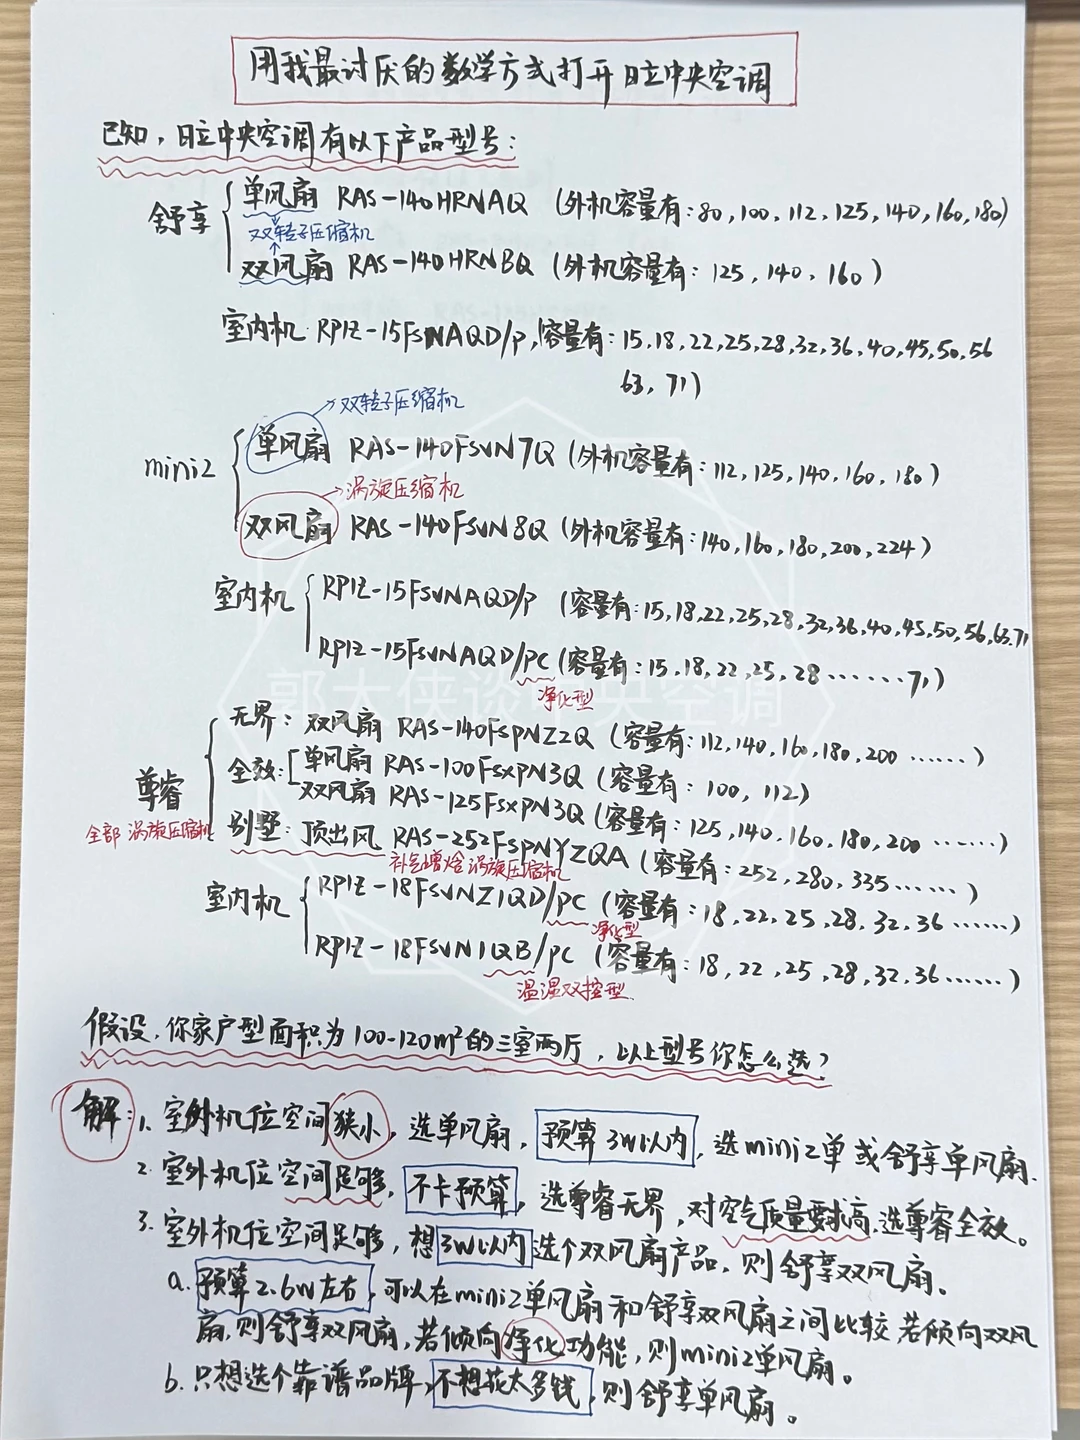 用我最讨厌的数学方式打开日立中央空调
已知，日立中央空调有以下产品型号：
舒享
单风扇 RAS-140HRNAQ （外机容量有：80，100，112，125，140，160，180）
双转子压缩机
双风扇 RAS-140HRNBQ （外机容量有：125，140，160）
室内机：RPIZ-15FSNAQD/P，（容量有：15，18，22，25，28，32，36，40，45，50，56
63，71）
双转子压缩机
mini2
单风扇 RAS-140FSVN7Q （外机容量有：112，125，140，160，180）
涡旋压缩机
双风扇 RAS-140FSVN8Q （外机容量有：140，160，180，200，224）
室内机
RPIZ-15FSVNAQD/P （容量有：15，18，22，25，28，32，36，40，45，50，56，63，71
RPIZ-15FSVNAQD/PC （容量有：15，18，22，25，28……71）
净化型
郭大侠谈中央空调
尊睿
全部涡旋压缩机
无界：双风扇 RAS-140FSPNZ2Q （容量有：112，140，160，180，200……）
全效：单风扇 RAS-100FSXPN3Q （容量有：100，112）
双风扇 RAS-125FSXPN3Q （容量有：125，140，160，180，200……）
别墅：顶出风 RAS-252FSPNYZQA （容量有：252，280，335……）
补气增焓涡旋压缩机
室内机
RPIZ-18FSVNZ1QD/PC （容量有：18，22，25，28，32，36……）
净化型
RPIZ-18FSVN1QB/PC （容量有：18，22，25，28，32，36……）
温湿双控型
假设，你家户型面积为100-120m²的三室两厅，以上型号你怎么选？
解：1. 室外机位空间狭小，选单风扇，预算3W以内，选mini2单或舒享单风扇.
2. 室外机位空间足够，不卡预算，选尊睿无界，对空气质量要求高，选尊睿全效。
3. 室外机位空间足够，想3W以内选个双风扇产品，则舒享双风扇。
a. 预算2.6W左右，可以在mini2单风扇和舒享双风扇之间比较 若倾向双风
扇，则舒享双风扇，若倾向净化功能，则mini2单风扇。
b. 只想选个靠谱品牌，不想花太多钱，则舒享单风扇。